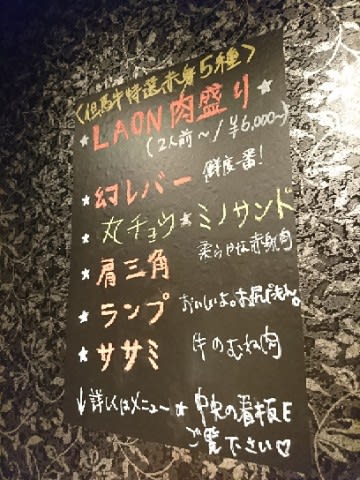 〈但馬牛特選赤身5種〉
★LAON肉盛り★
(2人前〜/¥6,000〜)
★幻レバー 鮮度一番!
★丸チョウ★ミノサンド
★肩三角 柔らかな赤身肉
★ランプ おいしいよ。お尻だもん。
★ササミ 牛のむね肉
↓詳しくはメニュー★中央の看板を
ご覧下さい♡
人